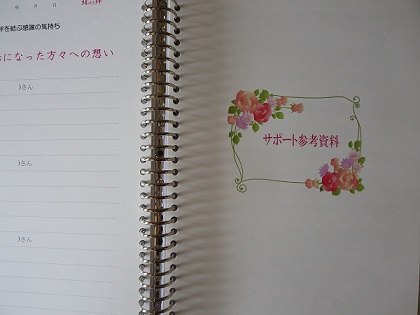 年 月 日
絆を結ぶ感謝の気持ち
になった方々への想い
)さん
)さん
)さん
サポート参考資料